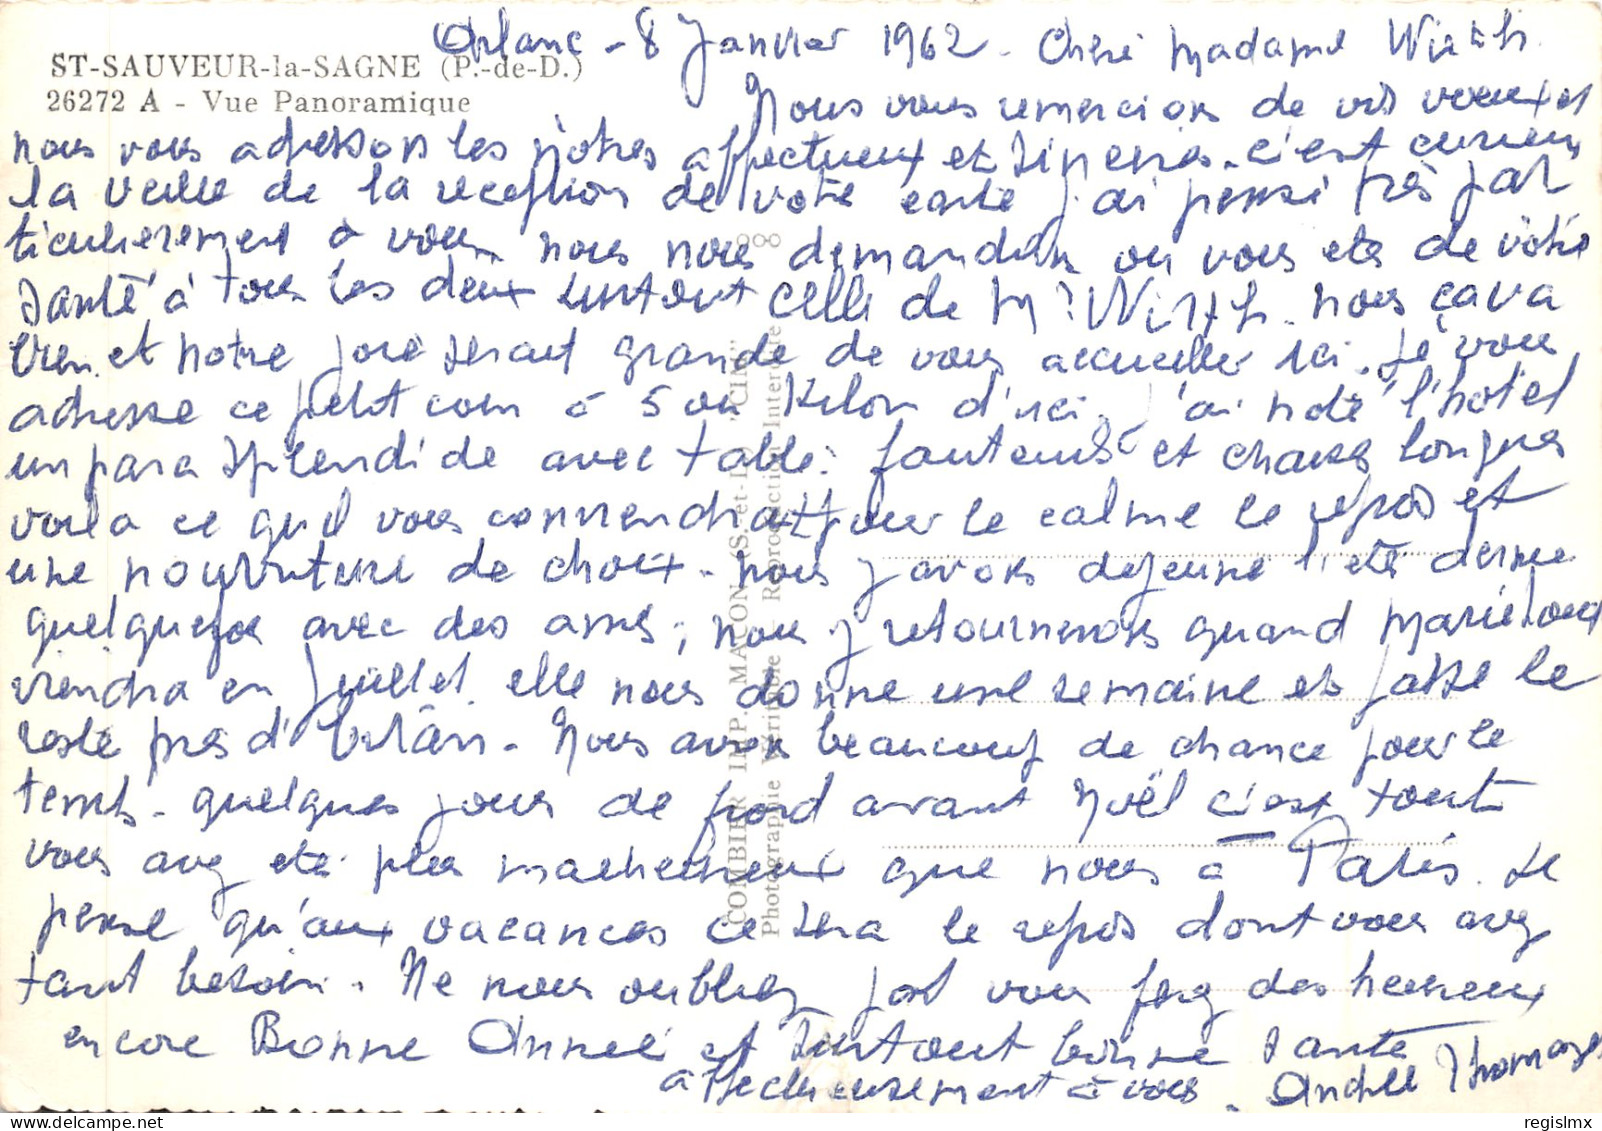 Arlanc - 8 Janvier 1962 - Chère Madame
ST-SAUVEUR-la-SAGNE (P.-de-D.)
26272 A - Vue Panoramique
Nous vous remercions de vos voeux et
nous vous adressons les nôtres affectueux et sincères. c'est curieux
la veille de la réception de votre carte j'ai pensé très par
ticulièrement à vous nous nous demandions où vous etes de votre
santé à tous les deux surtout celle de Mr nous ça va
bien et notre joie serait grande de vous accueillir ici. Je vous
adresse ce petit coin à 5 ou Kilom d'ici, j'ai noté l'hotel
un parc splendide avec table fauteuils et chaises longues
voila ce qu'il vous conviendrait pour le calme le repos et
une nourriture de choix - nous y avons dejeuné l'été dernier
quelquefois avec des amis, nous y retournerons quand Marie Lou
viendra en Juillet. elle nous donne une semaine et passe le
reste près d' Nous avons beaucoup de chance pour le
temps - quelques jours de froid avant Noël c'est tout
vous avez été plus malheureux que nous à Paris. Je
pense qu'aux vacances ce sera le repos dont vous avez
tant besoin. Ne nous oubliez pas vous ferez des heureux
encore Bonne Année et surtout bonne santé
affectueusement à vous - Andrée Thomazet
COMBIER IMP. MACON (S.-et-L.) "CIM"
Photographie Véritable - Reproduction Interdite